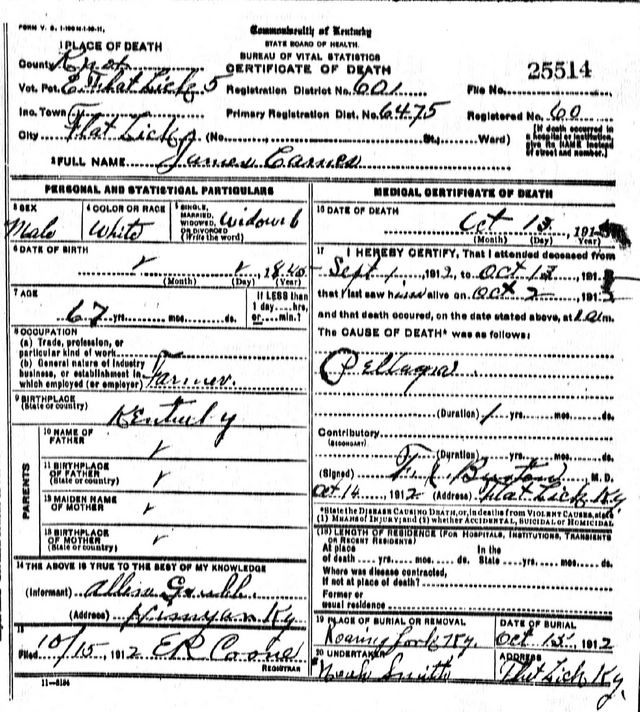 FORM V. S. 1-100M-1-30-11.
Commonwealth of Kentucky
STATE BOARD OF HEALTH.
BUREAU OF VITAL STATISTICS
CERTIFICATE OF DEATH
25514
1 PLACE OF DEATH
County Knox
Vot. Pct. E. Flat Lick 5 Registration District No. 601 File No.
Inc. Town Primary Registration Dist. No. 6475 Registered No. 60
City Flat Lick (No. St.; Ward)
[If death occurred in a hospital or institution, give its NAME instead of street and number.]
2 FULL NAME James Carnes
PERSONAL AND STATISTICAL PARTICULARS
3 SEX Male
4 COLOR OR RACE White
5 SINGLE, MARRIED, WIDOWED, OR DIVORCED (Write the word)
6 DATE OF BIRTH
1845
(Month) (Day) (Year)
7 AGE
67 yrs. mos. ds.
If LESS than 1 day---hrs, or---min.?
8 OCCUPATION
(a) Trade, profession, or particular kind of work
(b) General nature of industry business, or establishment in which employed (or employer) Farmer.
9 BIRTHPLACE
(State or country) Kentucky
PARENTS
10 NAME OF FATHER
11 BIRTHPLACE OF FATHER (State or country)
12 MAIDEN NAME OF MOTHER
13 BIRTHPLACE OF MOTHER (State or country)
14 THE ABOVE IS TRUE TO THE BEST OF MY KNOWLEDGE
(Informant)
(Address) Ky
15
Filed 10/15, 1912 REGISTRAR
11-8184
MEDICAL CERTIFICATE OF DEATH
16 DATE OF DEATH
Oct 13, 191
(Month) (Day) (Year)
17 I HEREBY CERTIFY, That I attended deceased from
Sept 1, 1912, to Oct 13, 191
that I last saw him alive on Oct 2, 1912
and that death occured, on the date stated above, at 1 a.m.
The CAUSE OF DEATH* was as follows:
Pellagra
(Duration) 1 yrs. mos. ds.
Contributory
(SECONDARY)
(Duration) yrs. mos. ds.
(Signed) Burton M. D.
Oct 14, 1912 (Address) Flat Lick Ky.
*State the DISEASE CAUSING DEATH, or, in deaths from VIOLENT CAUSES, state (1) MEANS OF INJURY; and (2) whether ACCIDENTAL, SUICIDAL or HOMICIDAL
(18) LENGTH OF RESIDENCE (FOR HOSPITALS, INSTITUTIONS, TRANSIENTS OR RECENT RESIDENTS)
At place of death yrs. mos. ds. In the State yrs. mos. ds.
Where was disease contracted,
If not at place of death?
Former or usual residence
19 PLACE OF BURIAL OR REMOVAL
Roaring Fork Ky.
DATE OF BURIAL
Oct 15, 1912
20 UNDERTAKER
Noah Smith
ADDRESS
Flat Lick Ky.